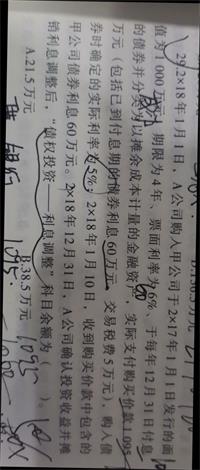 29.2×18年1月1日，A公司购入甲公司于2×17年1月1日发行的面
值为1 000万元、期限为4年、票面利率为6%、于每年12月31日付息
的债券并分类为以摊余成本计量的金融资产，实际支付购买价款1 095
万元（包括已到付息期的债券利息60万元，交易税费5万元），购入债
券时确定的实际利率为5%；2×18年1月10日，收到购买价款中包含的
甲公司债券利息60万元。2×18年12月31日，A公司确认投资收益并摊
销利息调整后，“债权投资——利息调整”科目余额为（　）。
A.21.5万元　B.38.5万元
1095